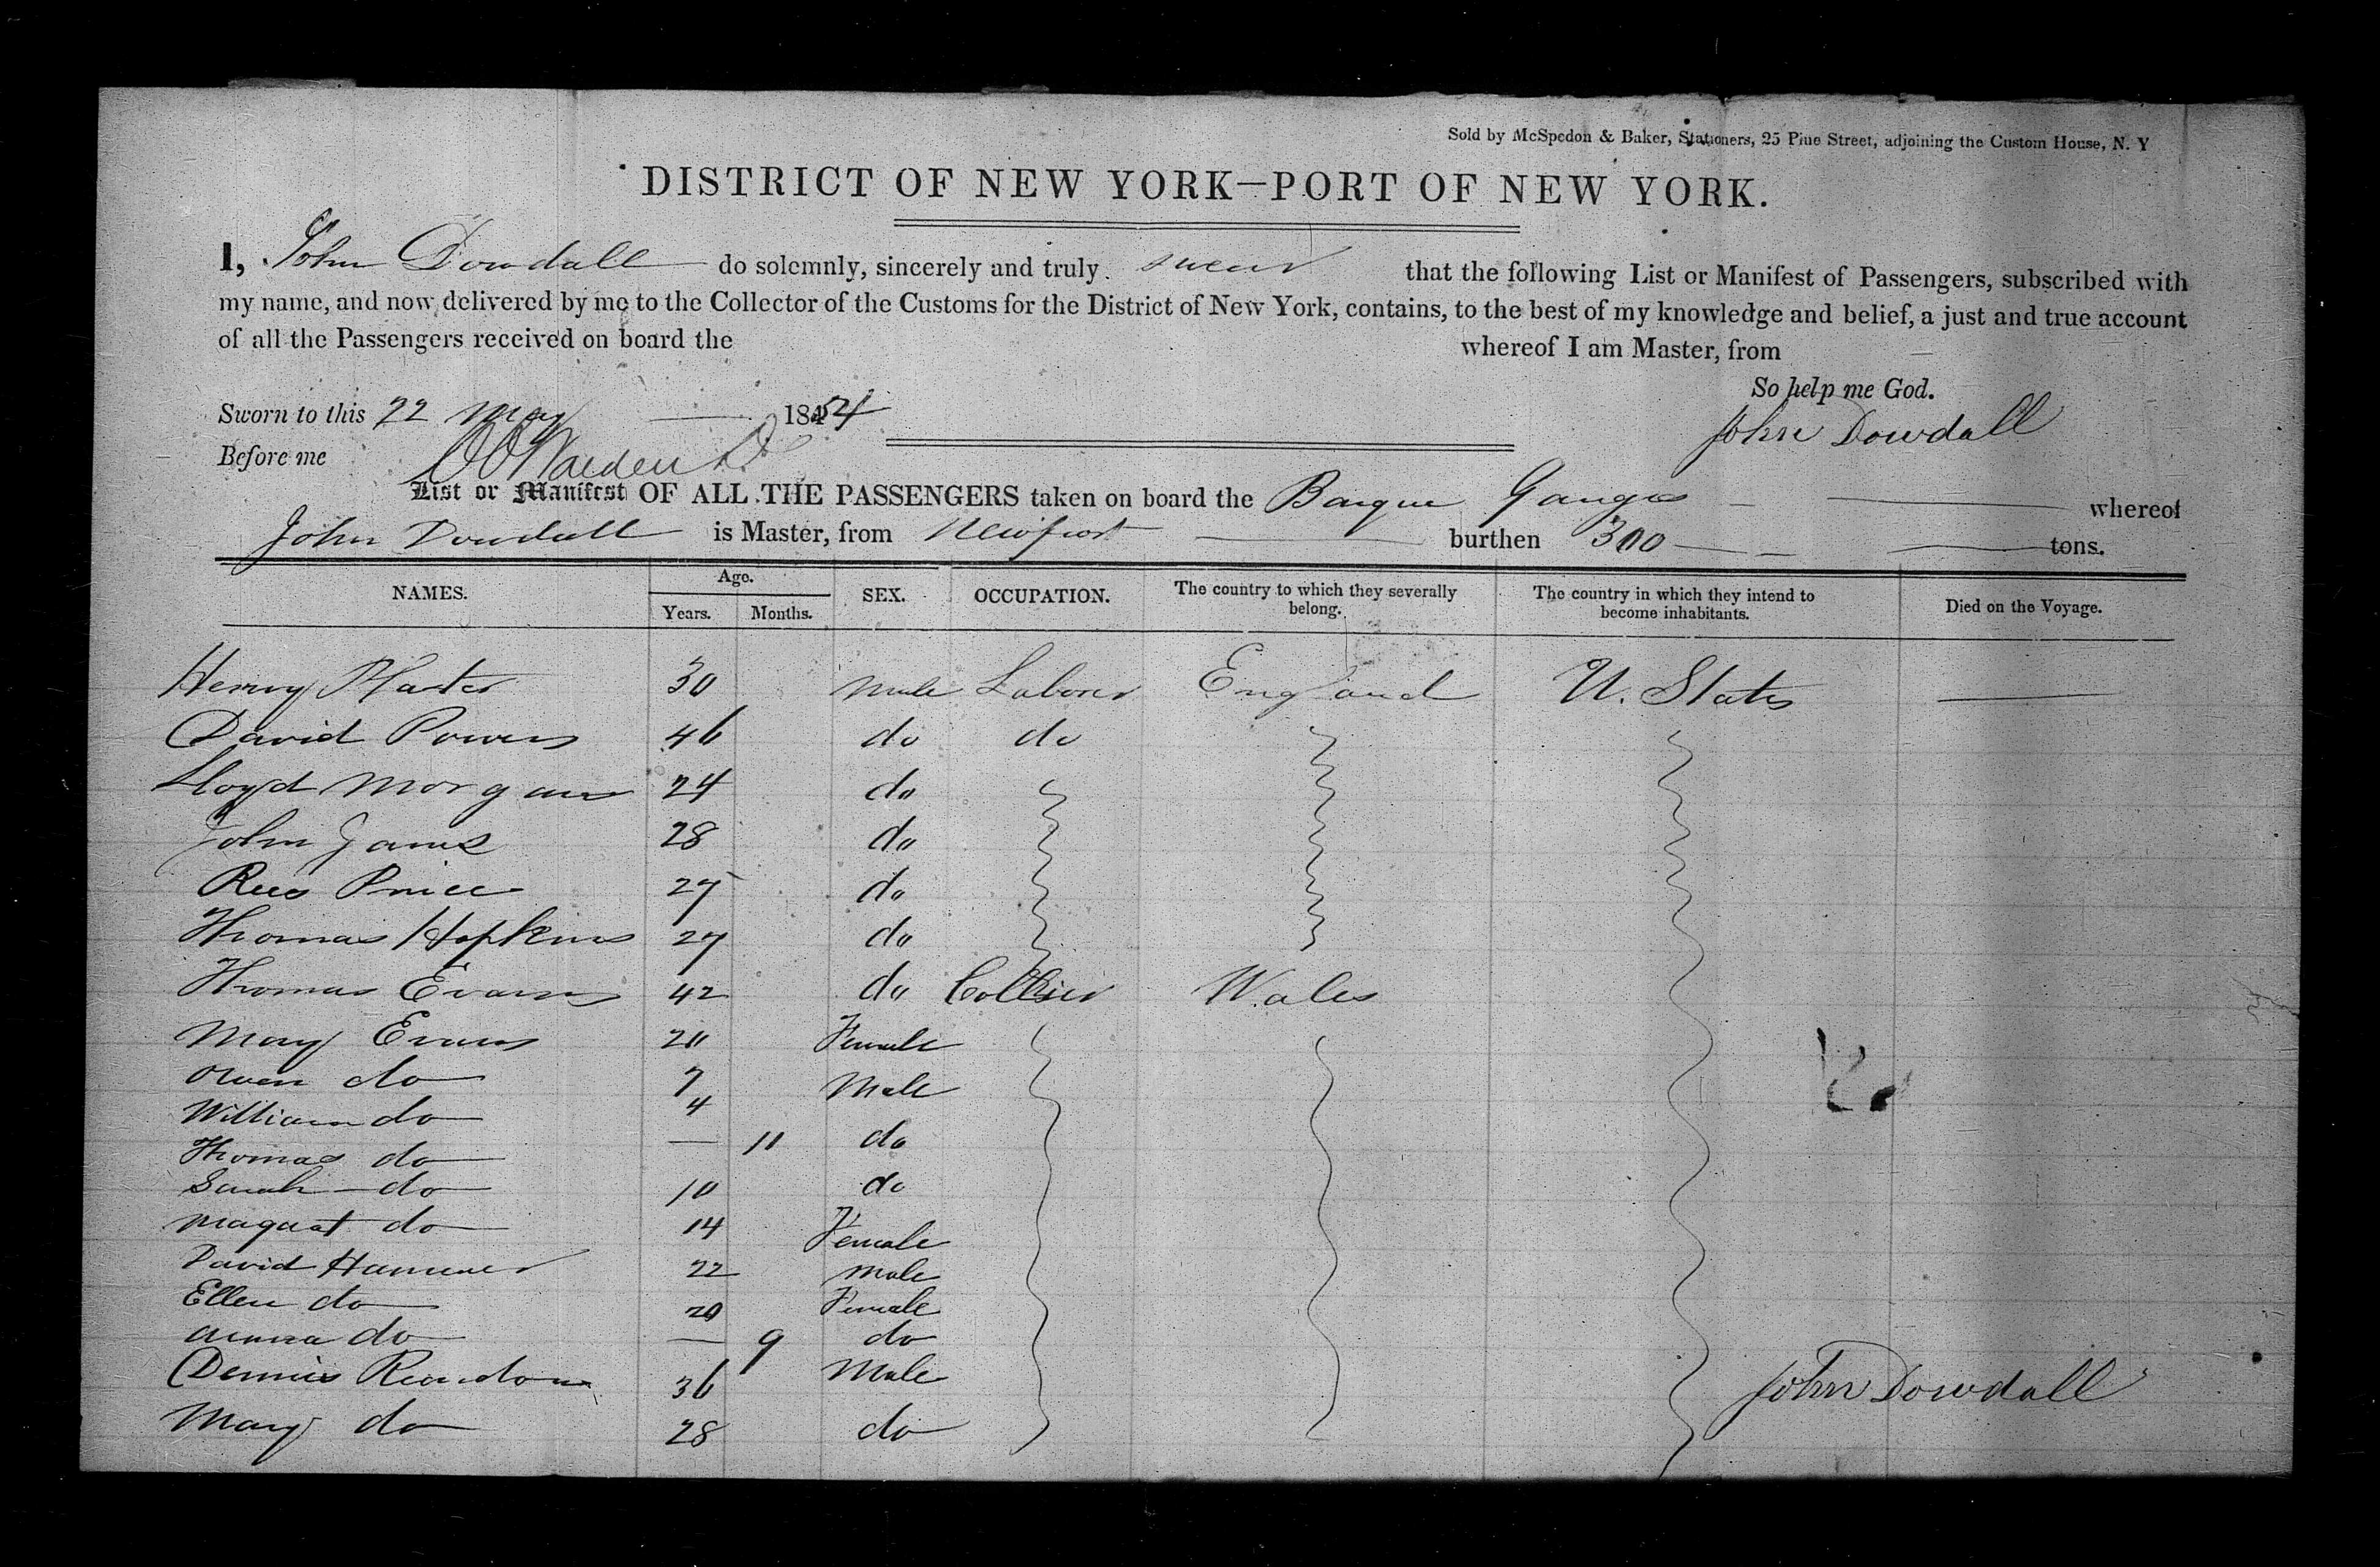 Sold by McSpedon & Baker, Stationers, 25 Pine Street, adjoining the Custom House, N. Y
DISTRICT OF NEW YORK—PORT OF NEW YORK.
I, John Dowdall do solemnly, sincerely and truly swear that the following List or Manifest of Passengers, subscribed with
my name, and now delivered by me to the Collector of the Customs for the District of New York, contains, to the best of my knowledge and belief, a just and true account
of all the Passengers received on board the whereof I am Master, from
So help me God.
Sworn to this 22 May 1854
John Dowdall
Before me
List or Manifest OF ALL THE PASSENGERS taken on board the Barque Ganges whereof
John Dowdall is Master, from Newport burthen 300 tons.
NAMES. Age. Years. Months. SEX. OCCUPATION. The country to which they severally belong. The country in which they intend to become inhabitants. Died on the Voyage.
Henry 30 male Laborer England U. States —
David Powers 46 do do
Lloyd Morgan 24 do
John James 28 do
Rees Price 27 do
Thomas Hopkins 27 do
Thomas Evans 42 do Collier Wales
Mary Evans 20 Female
Owen do 7 Male
William do 4
Thomas do — 11 do
Sarah do 10 do
Magaat do 14 Female
David Hammer 22 male
Ellen do 20 Female
Anna do — 9 do
Dennis 36 Male
Mary do 28 do
John Dowdall